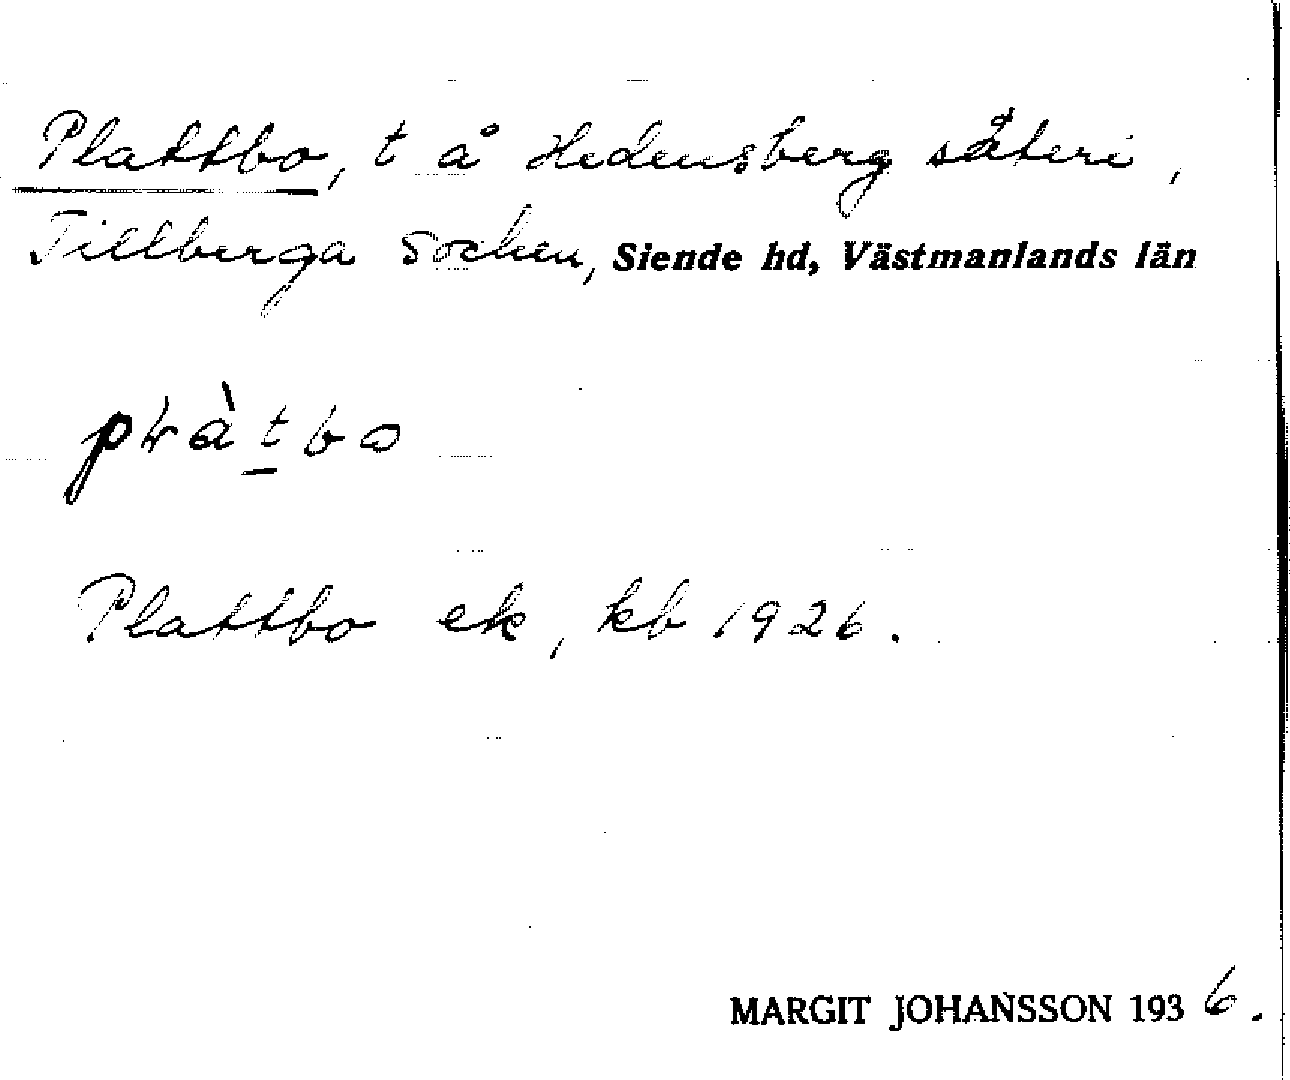 Plattbo, t å Hedensberg säteri,
Tillberga socken, Siende hd, Västmanlands län
Plattbo ek, kb 1926.
MARGIT JOHANSSON 1936.